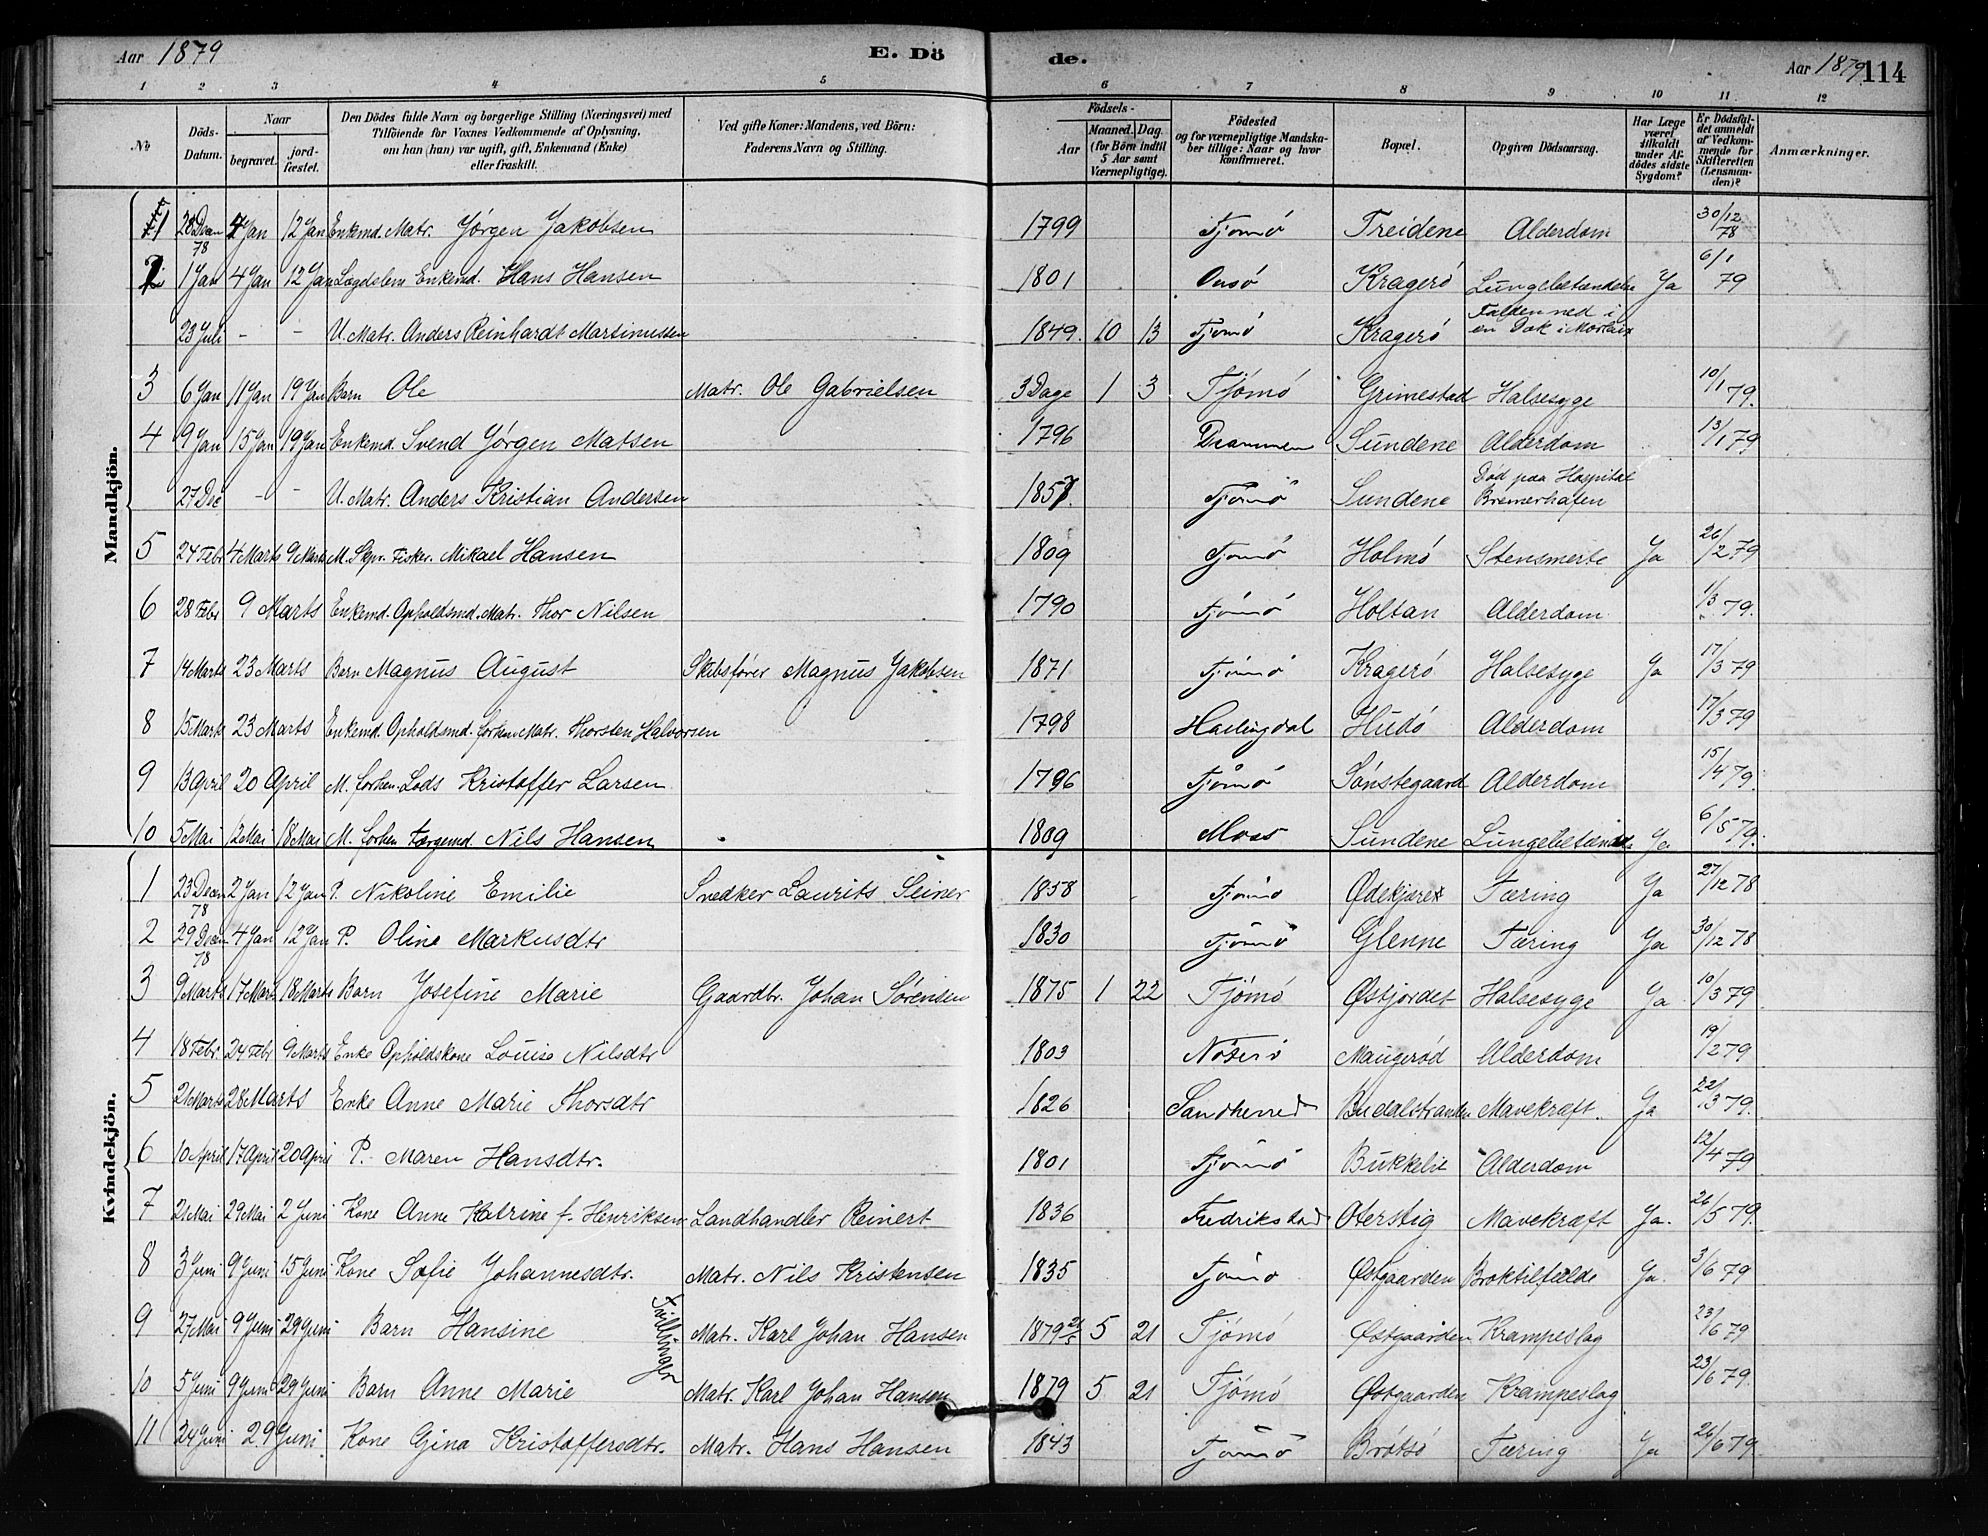 Aar 1879 E. Dö de. Aar 1879 114
1 2 3 4 5 6 7 8 9 10 11 12
No
Döds-Datum.
Naar
begravet.
jord-fæstet.
Den Dödes fulde Navn og borgerlige Stilling (Næringsvei) med
Tilföiende for Voxnes Vedkommende af Oplysning,
om han (hun) var ugift, gift, Enkemand (Enke)
eller fraskilt.
Ved gifte Koner: Mandens, ved Börn:
Faderens Navn og Stilling.
Födsels-
Aar
Maaned.
Dag.
(for Börn indtil
5 Aar samt
Værnepligtige).
Födested
og for værnepligtige Mandska-
ber tillige: Naar og hvor
konfirmeret.
Bopæl.
Opgiven Dödsaarsag.
Har Læge
været
tilkaldt
under Af-
dödes sidste
Sygdom?
Er Dödsfal-
det anmeldt
af Vedkom-
mende for
Skifteretten
(Lensman-
den)?
Anmærkninger.
Mandkjön.
1 28 Decm 78 4 Jan 12 Jan Enkemd. Matr. Jørgen Jakobsen 1799 Tjømø Treidene Alderdom 30/12 78
2 1 Jan 4 Jan 12 Jan Lægdslem Enkemd. Hans Hansen 1801 Onsø Kragerø Lungebetændelse Ja 6/1 79
23 Juli - - U. Matr. Anders Reinhardt Martinussen 1849. 10 13 Tjømø Kragerø Falden ned i en Dok i
3 6 Jan 11 Jan 19 Jan Barn Ole Matr. Ole Gabrielsen 3 Dage 1 3 Tjømø Grimestad Halsesyge 10/1 79.
4 9 Jan 15 Jan 19 Jan Enkemd. Svend Jørgen Matsen 1796 Drammen Sundene Alderdom 13/1 79
27 Dec - - U. Matr. Anders Kristian Andersen 1857. Tjømø Sundene Død paa Hospital Bremerhafen
5 24 Febr 4 Marts 9 Marts M. Skpr. Fisker. Mikael Hansen 1809 Tjømø Holmø Stensmerte Ja 26/2 79
6 28 Febr 9 Marts Enkemd. Opholdsmd. Matr. Thor Nilsen 1790 Tjømø Holtan Alderdom 1/3 79.
7 14 Marts 23 Marts Barn Magnus August Skibsfører Magnus Jakobsen 1871 Tjømø Kragerø Halsesyge Ja 17/3 79
8 15 Marts 23 Marts Enkemd. Opholdsmd. forhen Matr. Thorsten Halvorsen 1798 Hallingdal Hudø Alderdom 17/3 79
9 13 April 20 April M. forhen. Lods Kristoffer Larsen 1796 Tjømø Sønstegaard Alderdom 15/4 79.
10 5 Mai 12 Mai 18 Mai M. forhen Færgemd. Nils Hansen 1809 Moss Sundene Lungebetænd. Ja 6/5 79.
Kvindekjön.
1 23 Decm 78 2 Jan 12 Jan P. Nikoline Emilie Snedker Laurits Seiner 1858 Tjømø Ødekjæret Tæring Ja 27/12 78
2 29 Decm 78 4 Jan 12 Jan P. Oline Markusdtr 1830 Tjømø Glenne Tæring Ja 30/12 78
3 9 Marts 17 Marts 18 Marts Barn Josefine Marie Gaardbr. Johan Sørensen 1875 1 22 Tjømø Østjordet Halsesyge Ja 10/3 79
4 18 Febr. 24 Febr 9 Marts Enke Opholdskone Louise Nilsdtr 1803 Nøterø Maugerød Alderdom 19/2 79
5 21 Marts 28 Marts Enke Anne Marie Thorsdtr 1826 Sandherred Budalstranden Mavekræft. Ja 22/3 79.
6 10 April 17 April 20 April P. Maren Hansdtr. 1801 Tjømø Bukkelit Alderdom 12/4 79
7 21 Mai 29 Mai 2 Juni Kone Anne Katrine f. Henriksen Landhandler Reinert 1836 Fredrikstad Oterstig Mavekræft Ja. 26/5 79.
8 3 Juni 9 Juni 15 Juni Kone Sofie Johannesdtr. Matr. Nils Kristensen 1835 Tjømø Østgaarden Broktilfælde Ja. 3/6 79
9 27 Mai 9 Juni 29 Juni Barn Hansine Tvillinger Matr. Karl Johan Hansen 1879 21/5 5 21 Tjømø Østgaarden Krampeslag 23/6 79
10 5 Juni 9 Juni 29 Juni Barn Anne Marie Matr. Karl Johan Hansen 1879 5 21 Tjømø Østgaarden Krampeslag 23/6 79
11 24 Juni 29 Juni Kone Gina Kristoffersdtr. Matr. Hans Hansen 1843 Tjømø Brøtsø Tæring Ja 26/6 79.